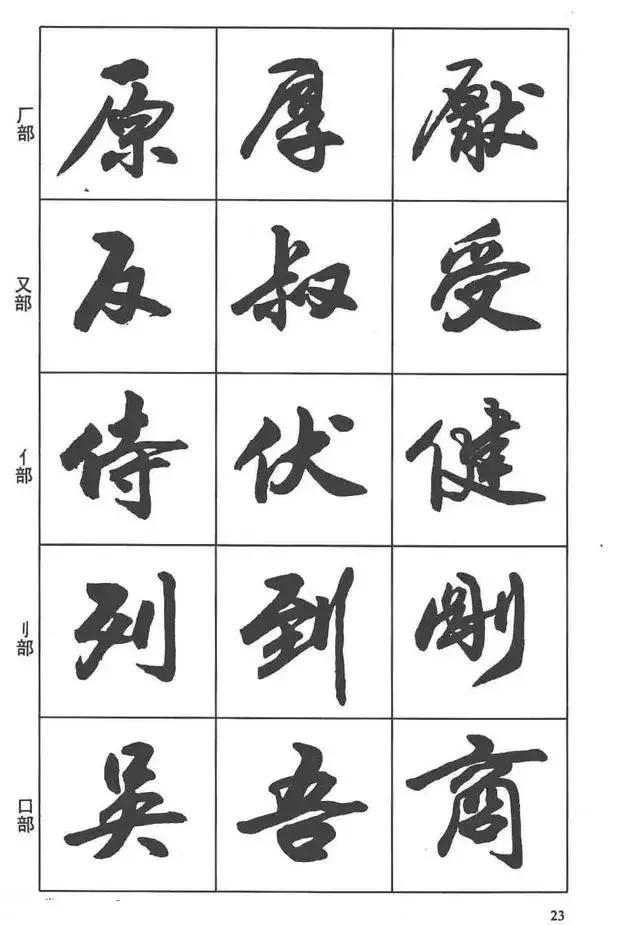 厂部 原 厚 厭
又部 反 叔 受
亻部 侍 伏 健
刂部 列 到 剛
口部 吴 吾 商
23